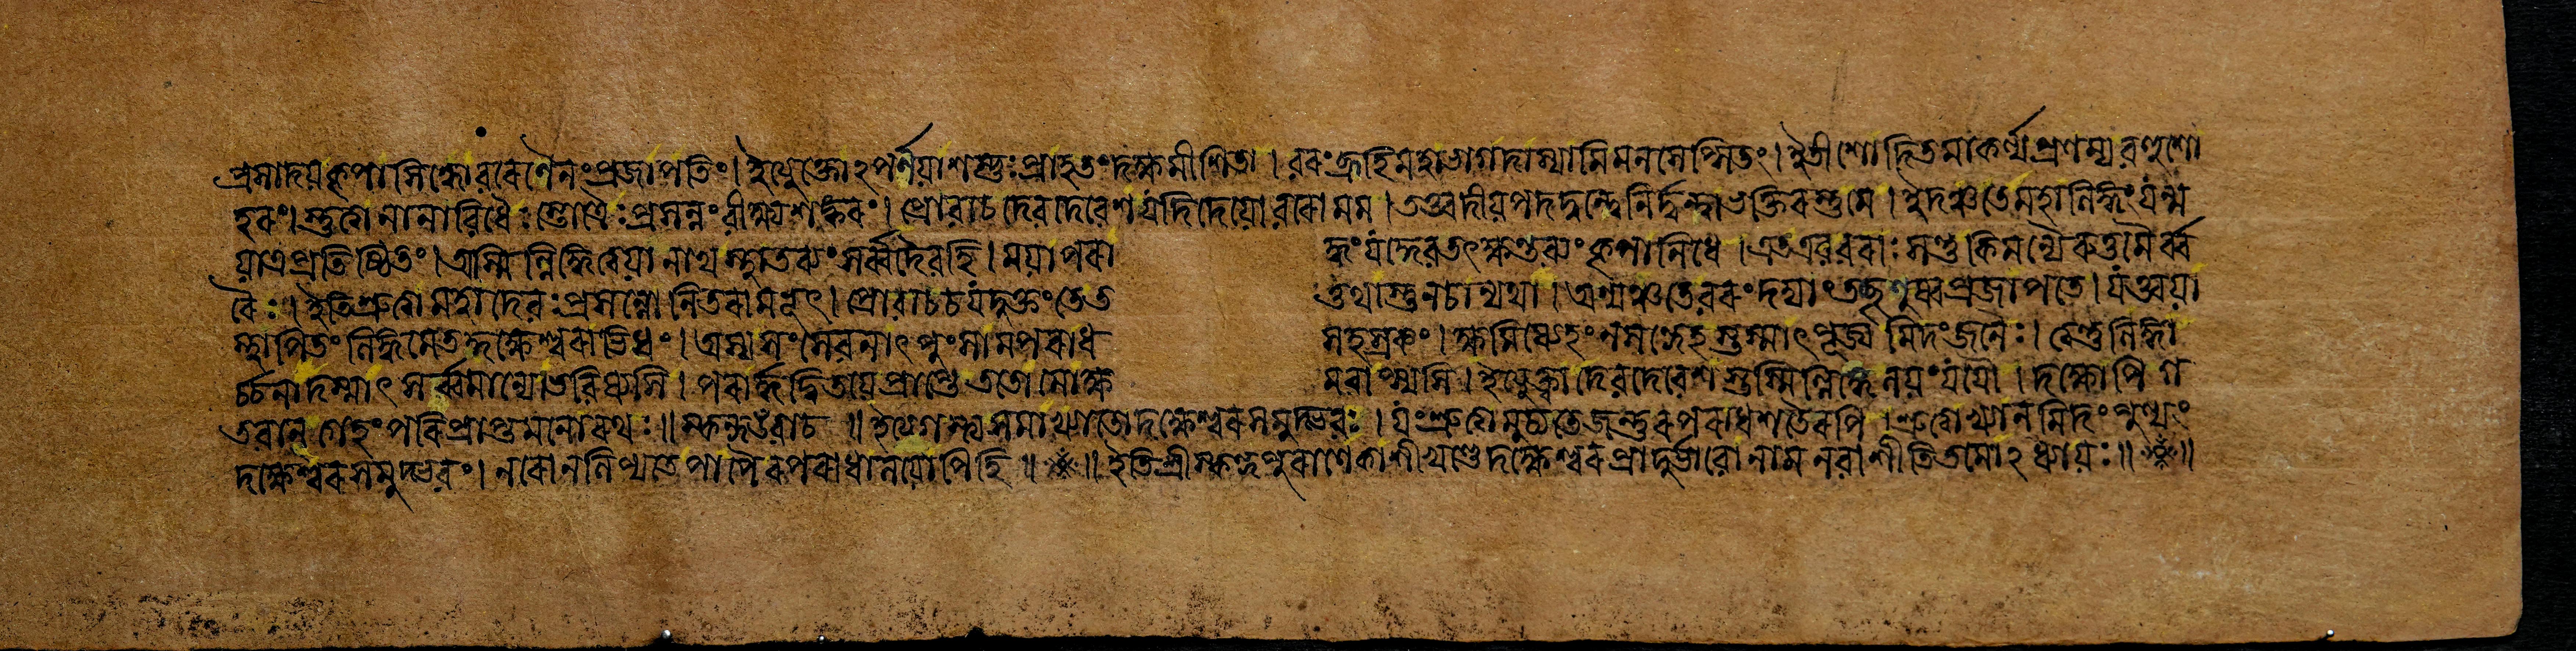 প্রসাদয়কৃপাসিন্ধোরবেণৈনংপ্রজাপতিং। ইত্যুক্তোঽপর্ণয়াশম্ভুঃপ্রাহতংদক্ষমীশিতা। বরংব্রূহিমহাভাগদদাম্যামিমনসেপ্সিতং। ইতীশোদিতমাকর্ণ্যপ্রণম্যবহুশো
হরং। স্তুত্বানানাবিধৈঃস্তোত্রৈঃপ্রসন্নংবীক্ষ্যশঙ্করং। প্রোবাচদেবদেবেশযদিদেয়োবরোমম। তত্ত্বদীয়পদদ্বন্দ্বেনির্দ্বন্দ্বাভক্তিরস্তুমে। ইদঞ্চতেমহালিঙ্গংযন্ম
য়াত্রপ্রতিষ্ঠিতং। অস্মিন্লিঙ্গেত্বয়ানাথস্থাতব্যংসর্ব্বদৈবহি। ময়াপরা দ্ধংযদ্দেবতৎক্ষন্তব্যংকৃপানিধে। এতএববরাঃসন্তুকিমন্যৈরুত্তমৈর্ব্ব
রৈঃ। ইতিশ্রুত্বামহাদেবঃপ্রসন্নোনিতরামভূৎ। প্রোবাচচযদুক্তংতেত ত্তথাস্তুনচান্যথা। অন্যঞ্চতেবরংদদ্যাংতচ্ছৃণুষ্বপ্রজাপতে। যত্ত্বয়া
স্থাপিতংলিঙ্গমেতদ্দক্ষেশ্বরাভিধং। অস্যসংসেবনাৎপুংসামপরাধ সহস্রকং। ক্ষমিষ্যেহংনসন্দেহস্তস্মাৎপূজ্যমিদংজনৈঃ। ত্বন্তুলিঙ্গা
র্চ্চনাদস্মাৎসর্ব্বমান্যোভবিষ্যসি। পরার্দ্ধদ্বিতয়েপ্রাপ্তেততোমোক্ষ মবাপ্স্যসি। ইত্যুক্ত্বাদেবদেবেশস্তস্মিল্লিঙ্গেলয়ংযযৌ। দক্ষোপিস্ব
গেহংপরিপ্রাপ্তমনোরথঃ॥ স্কন্দউবাচ॥ ইত্থংগস্ত্যসমাখ্যাতোদক্ষেশ্বরসমুদ্ভবঃ। যংশ্রুত্বামুচ্যতেজন্তুরপরাধশতৈরপি। শ্রুত্বাখ্যানমিদংপুণ্যং
দক্ষেশ্বরসমুদ্ভবং। নরোনলিপ্যতেপাপৈরপরাধালয়োপিহি॥ ॥ ইতিশ্রীস্কন্দপুরাণেকাশীখণ্ডেদক্ষেশ্বরপ্রাদুর্ভাবোনামনবাশীতিতমোঽধ্যায়ঃ॥ ॥